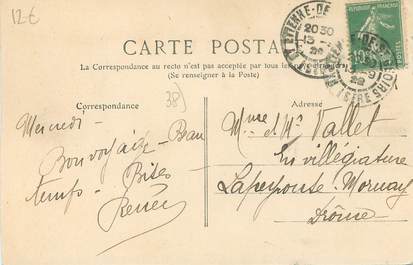 12€
CARTE POSTALE
La Correspondance au recto n'est pas acceptée par tous les pays étrangers
(Se renseigner à la Poste)
Correspondance
38)
Adresse
Mercredi -
Bon voyage - Beau
temps - Bises
Renée
Mme et Mr Vallet
En villégiature
Lapeyrouse-Mornay
Drôme
ST ETIENNE-DE-ST-GEOIRS
ISERE
20 30
13 -9
22